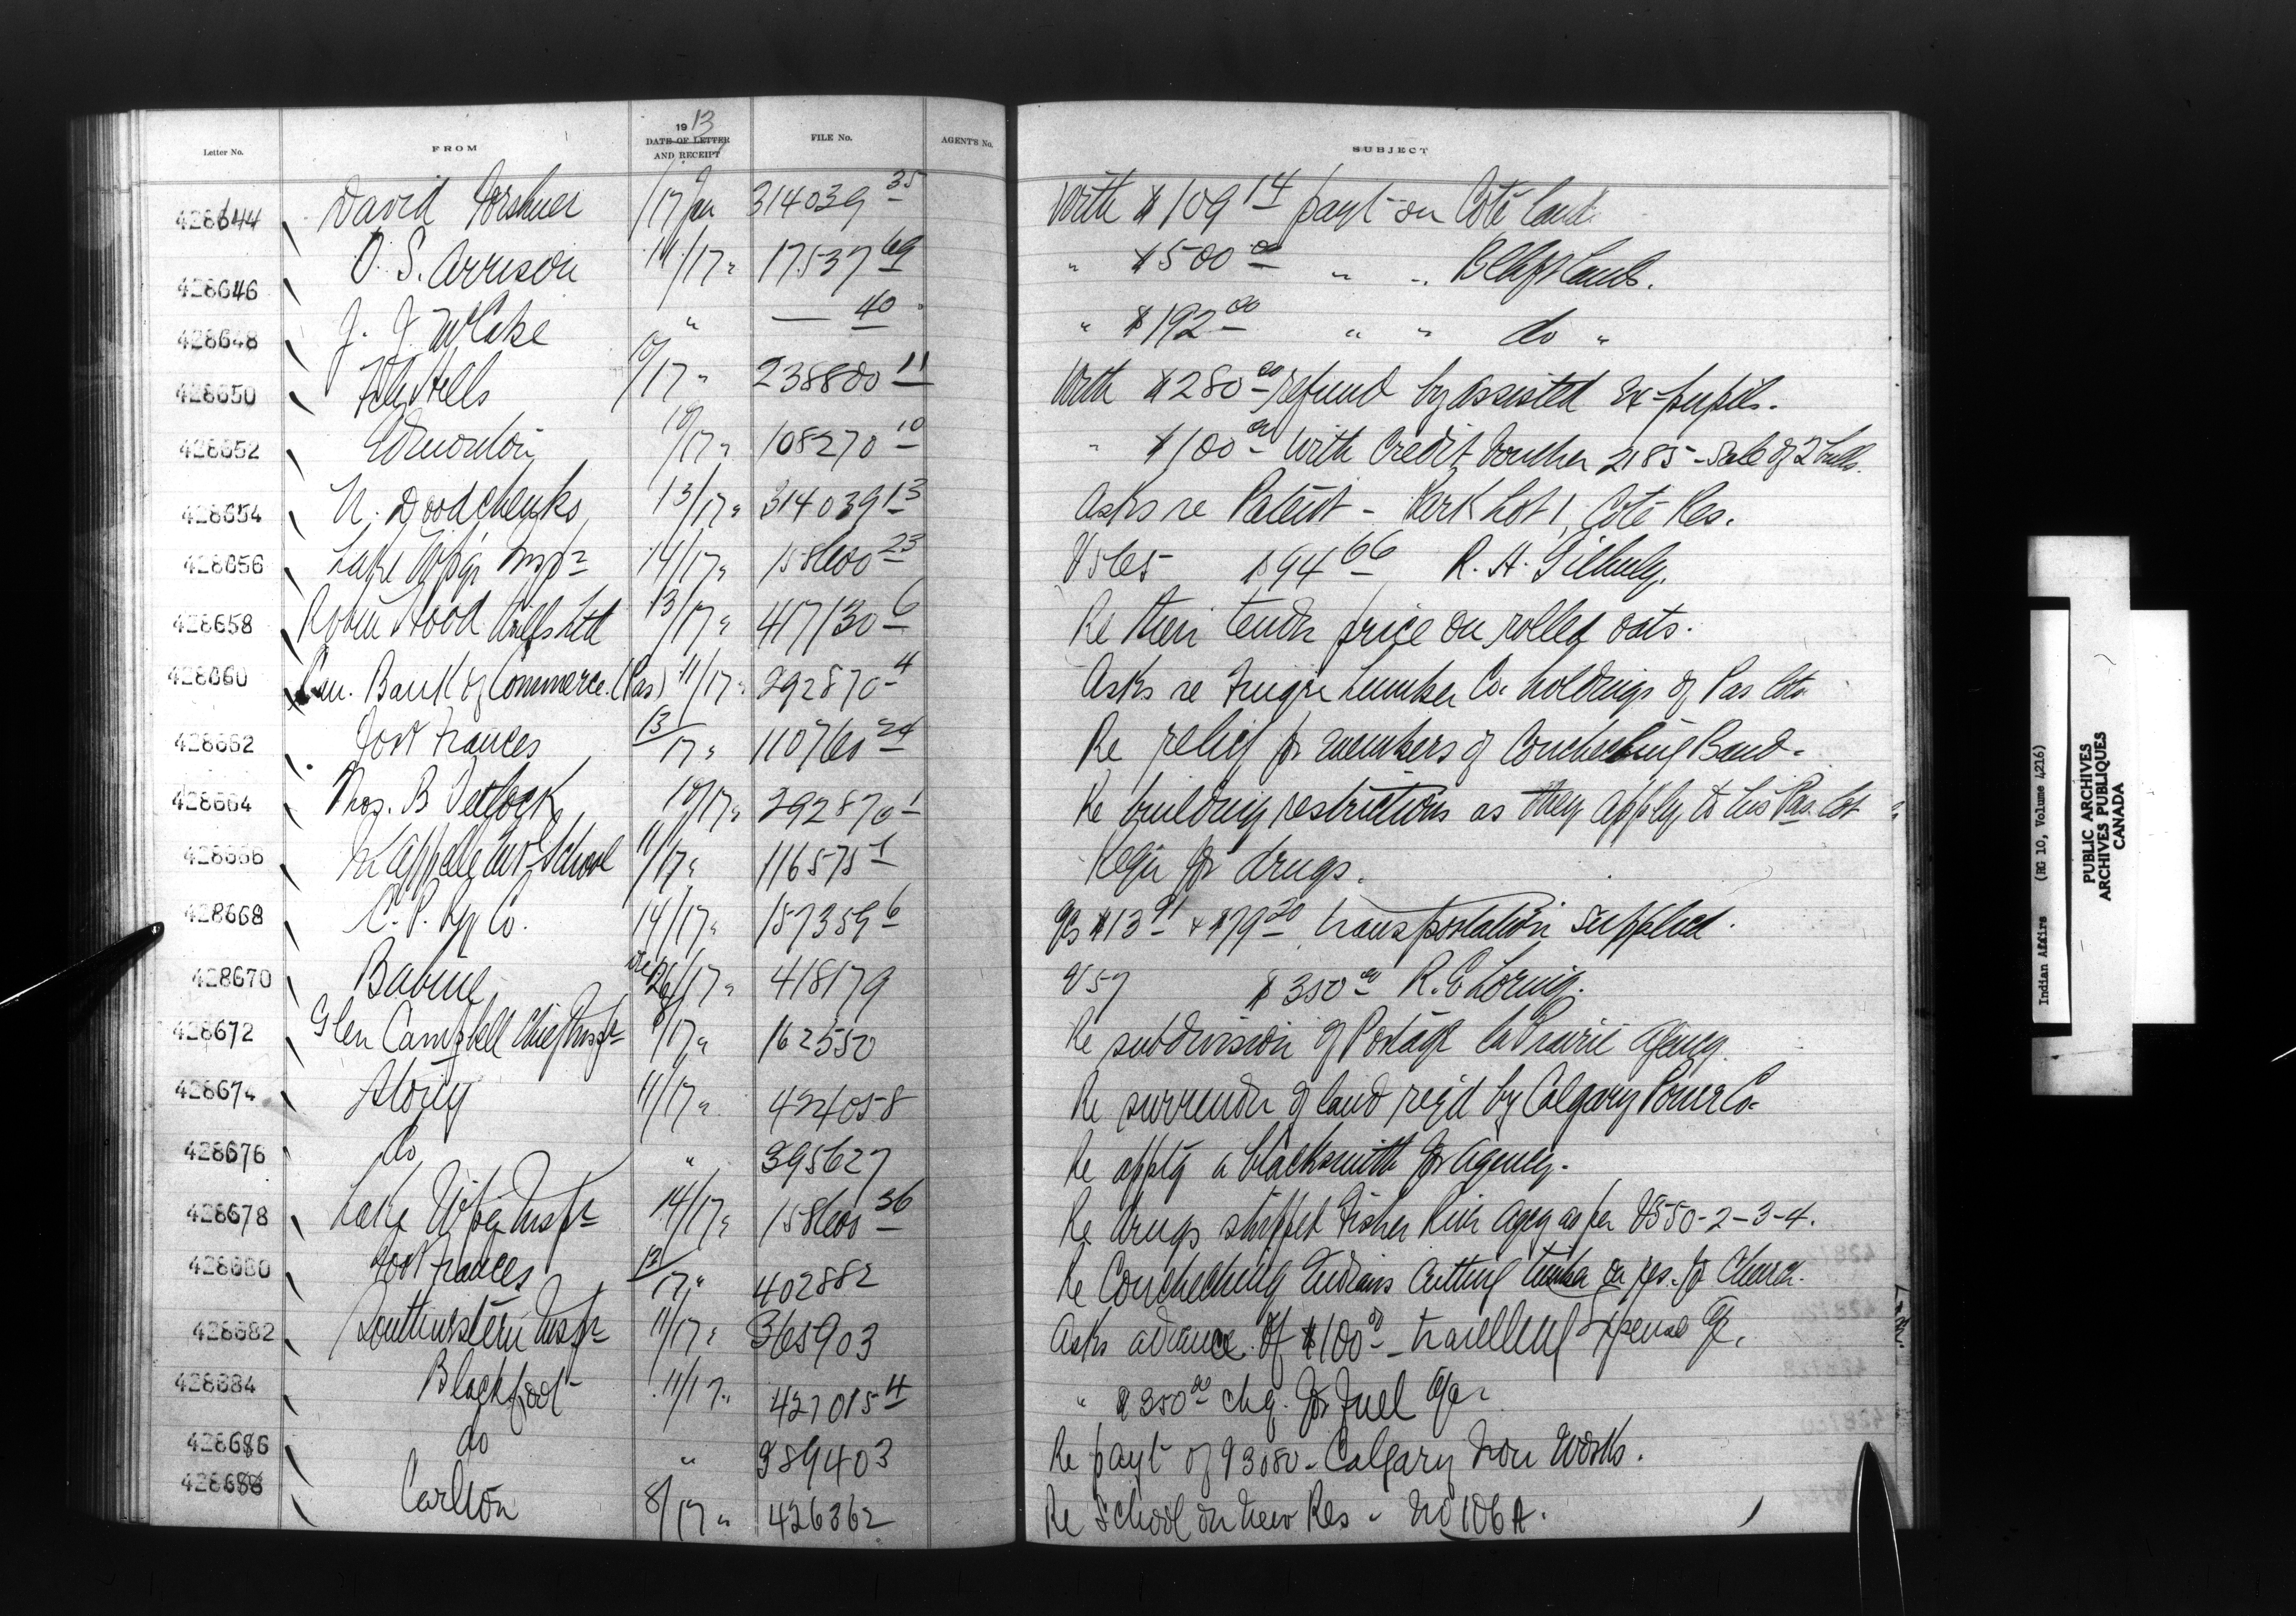 1913
Letter No. FROM DATE OF LETTER AND RECEIPT FILE No. AGENT'S No. SUBJECT
428644 David 17 Jan 314039 35 With $109 14 payt on Coté land
428646 O. S. Arrison 14/17 " 17537 69 " $500 00 " " Blkft lands.
428648 J. J. McCabe " — 40 " $192 00 " " do "
428650 File Hills 10/17 " 238800 11 With $280 00 refund by assisted Ex-pupils.
428652 Edmonton 10/17 " 108270 10 " $100 00 with Credit Voucher 2185 - Sale of 2 bulls.
428654 N. Doodchenko 13/17 " 314039 13 Asks re Patent - Park Lot 1, Coté Res.
428656 Lake Wpg Insp 14/17 " 158600 23 V565 $94 66 R. H.
428658 Robin Hood Mills Ltd 13/17 " 417130 6 Re their tender price on rolled oats.
428660 Can. Bank of Commerce. (Pas) 11/17 " 292870 4 Asks re Lumber Co. holdings of Pas lots
428662 Fort Frances 13/17 " 110760 24 Re relief for members of Couchiching Band.
428664 Thos. B 10/17 " 292870 1 Re building restrictions as they apply to his Pas lot
428666 Qu'Appelle Ind School 11/17 " 116575 1 Reqn for drugs.
428668 C. P. Ry Co. 14/17 " 157359 6 a/cs $13 91 + $79 20 transportation supplied.
428670 Babine Dec 26/17 " 418179 V57 $350 00 R. E. Loring.
428672 Glen Campbell Chief Inspr 8/17 " 162550 Re subdivision of Portage la Prairie Agency.
428674 Stony 11/17 " 424058 Re surrender of land req'd by Calgary Power Co.
428676 do " 395627 Re a blacksmith for agency.
428678 Lake Wpg Inspr 14/17 " 158600 36 Re drugs shipped Fisher River Agcy as per V550-2-3-4.
428680 Fort Frances 13/17 " 402882 Re Couchiching Indians cutting timber on res. for Church.
428682 Southwestern Inspr 11/17 " 365903 Asks advance of $100 00 - travelling Expense a/c.
428684 Blackfoot 11/17 " 427015 4 " $350 00 chq. for Fuel a/c
428686 do " 389403 Re payt of V3080 - Calgary Iron Works.
428688 Carlton 8/17 " 426362 Re School on new Res - No 106A.
Indian Affairs (RG 10, Volume 4216)
PUBLIC ARCHIVES
ARCHIVES PUBLIQUES
CANADA